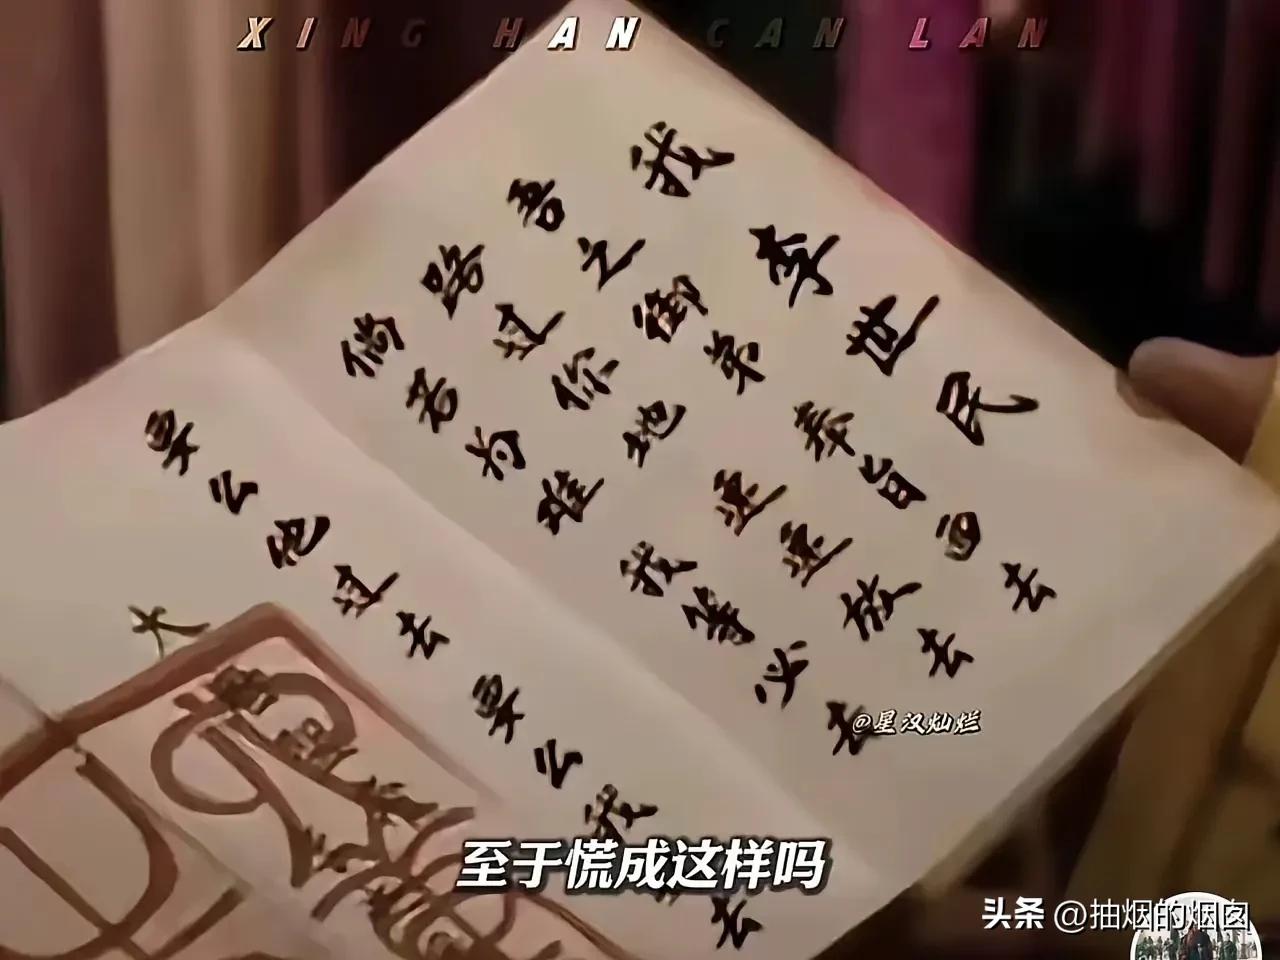 XING HAN CAN LAN
我李世民
吾之御弟奉旨西去
路过你地速速放去
倘若为难我等必去
要么他过去要么我去
大
@星汉灿烂
至于慌成这样吗
头条 @抽烟的烟囱